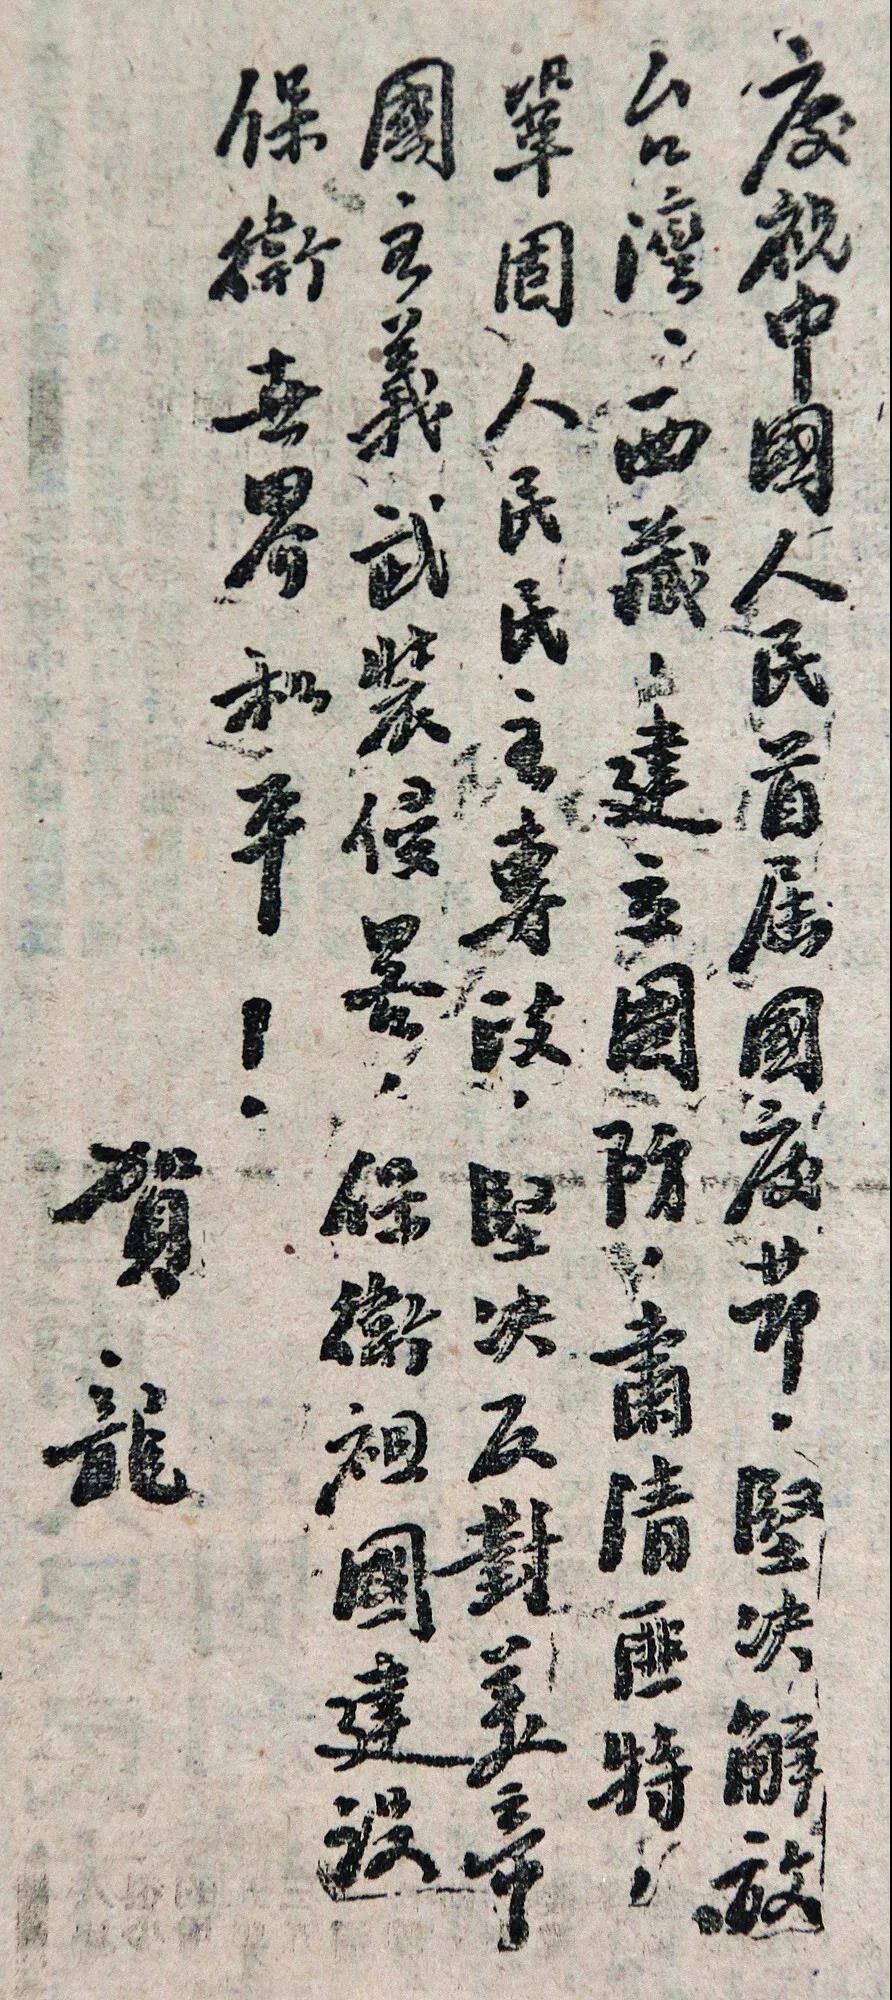 庆祝中國人民首届國庆节，堅决解放
台灣、西藏，建立國防，肅清匪特，
鞏固人民民主專政，堅决反對美帝
國主義武装侵畧，保衛祖國建设
保衛世界和平！
賀龍